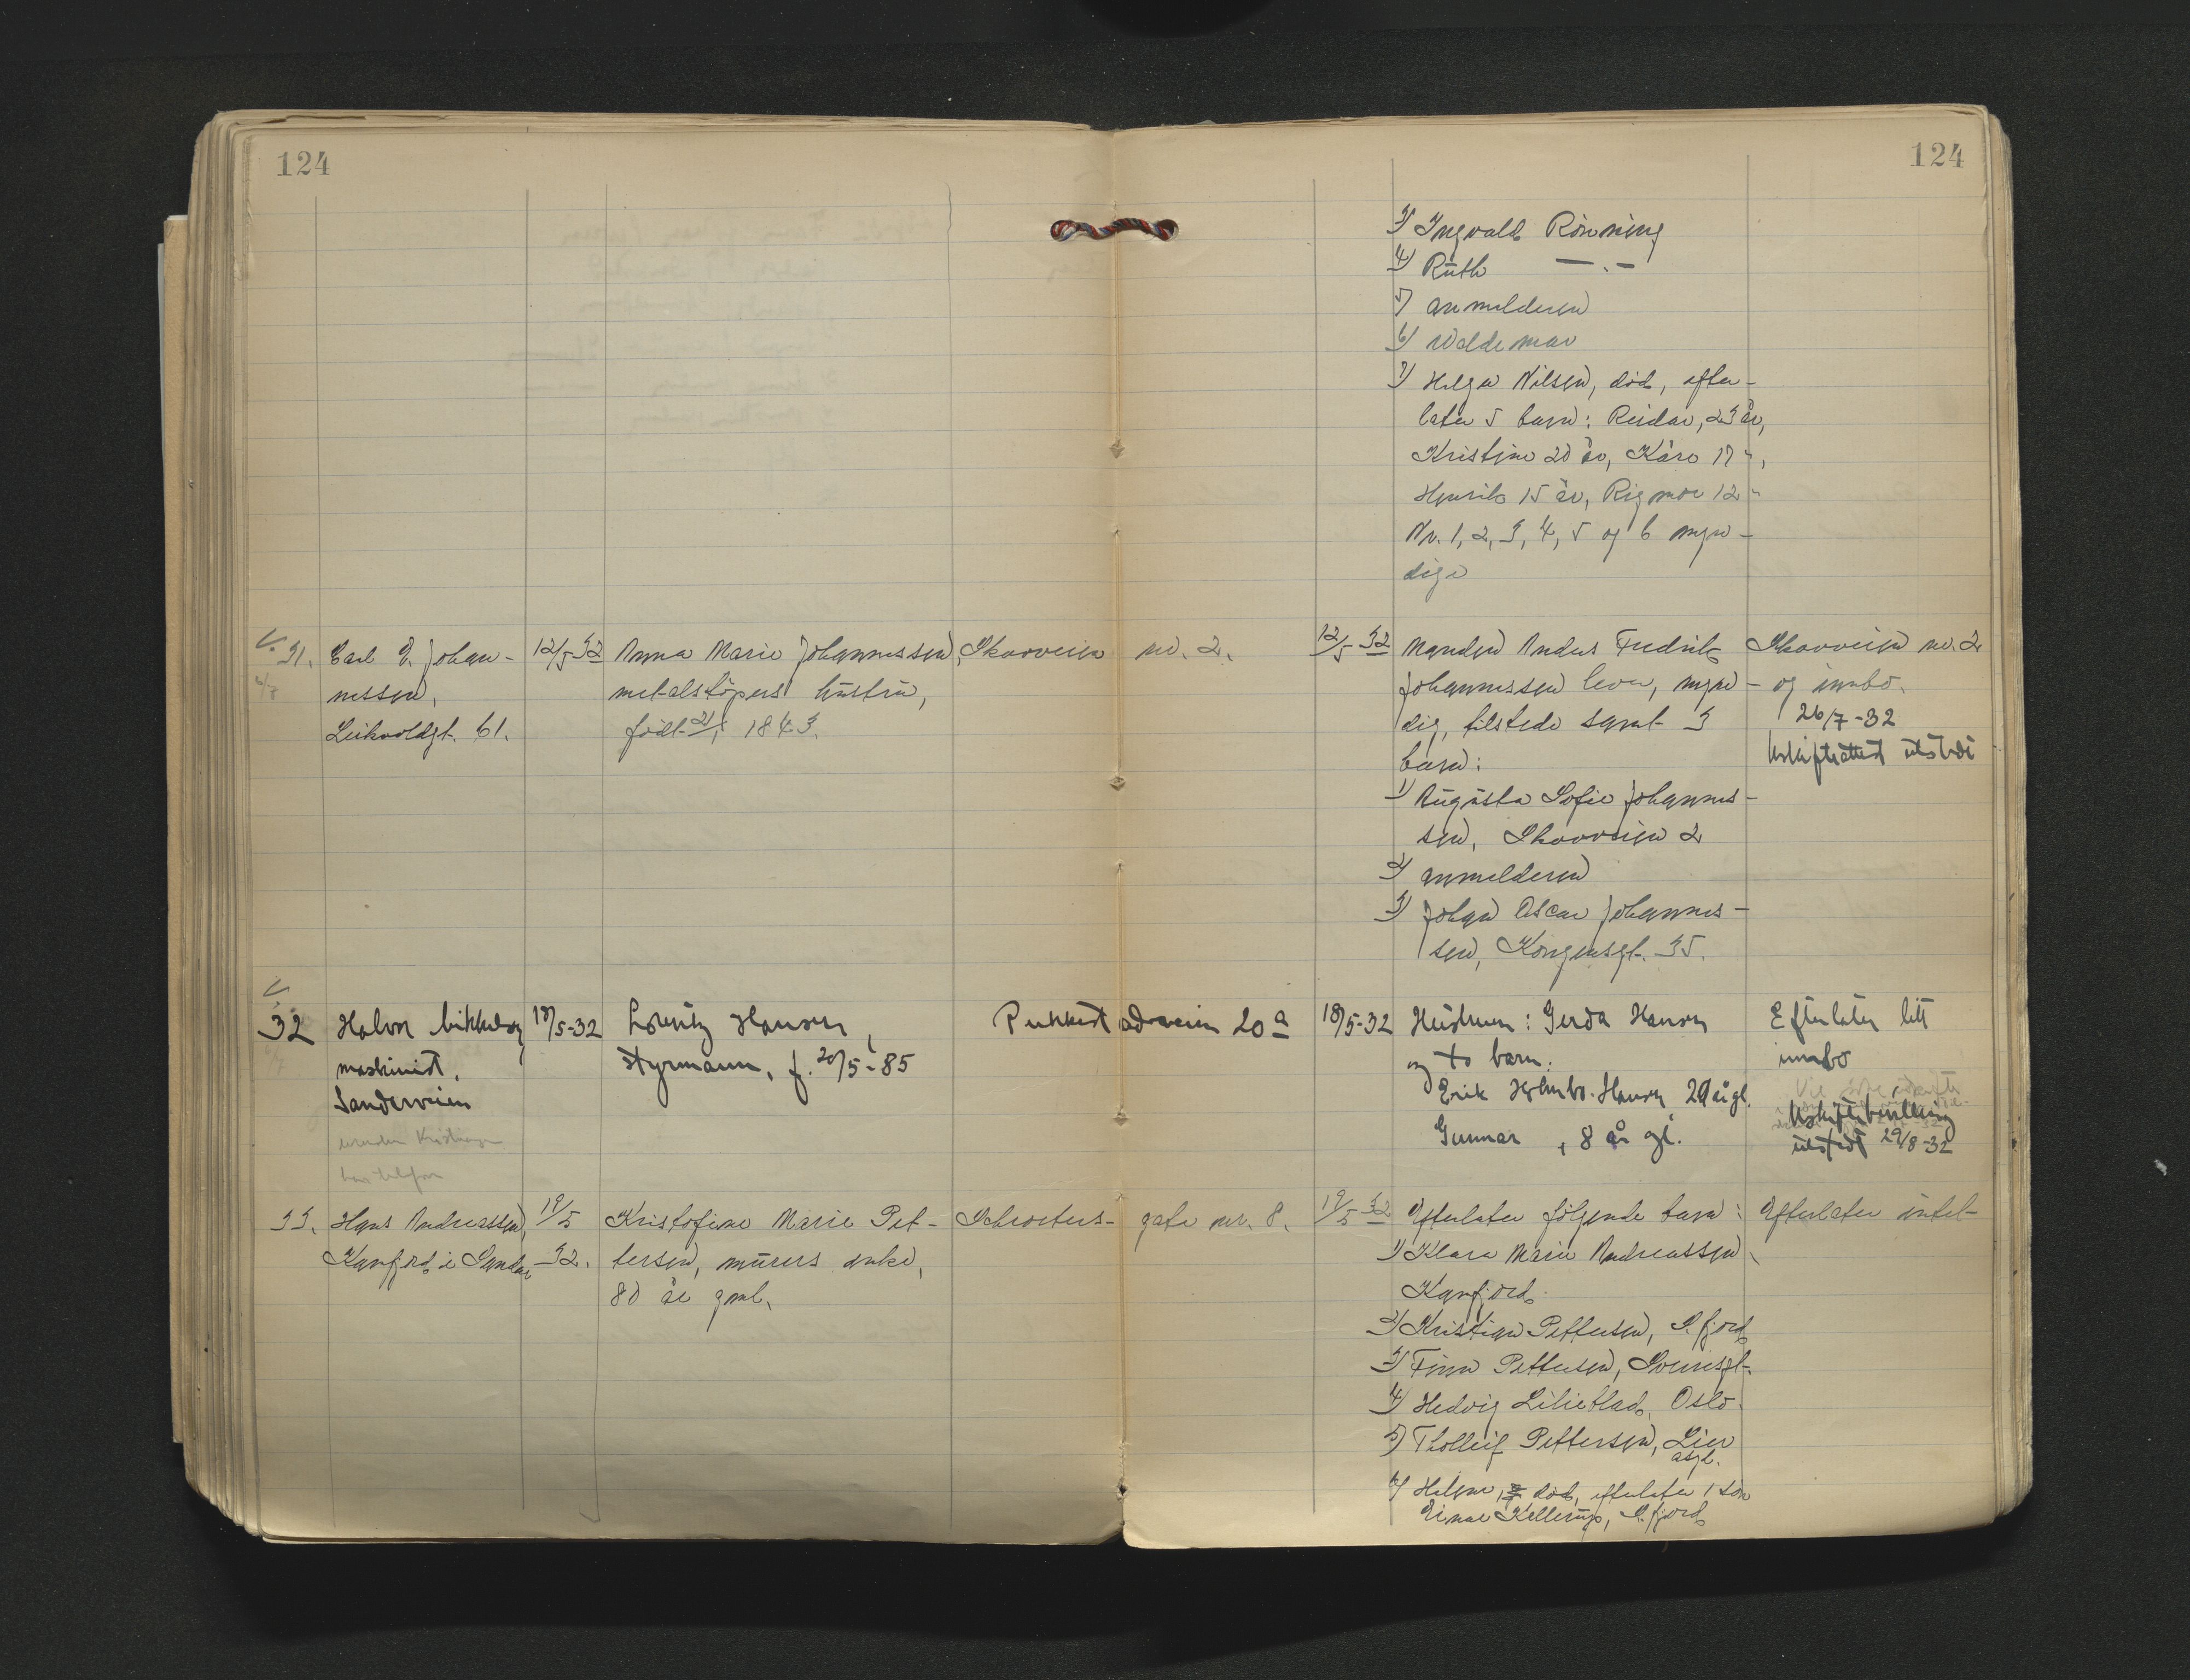 124
124
3) Ingvald Rönning
4) Ruth —.—
5) anmelderen
6) Waldemar
7) Helga Nilsen, död, efter-
later 5 barn: Reidar, 23 år,
Kristine 20 år, Kåre 17 ",
Henrik 15 år, Rigmor 12 "
Nr. 1, 2, 3, 4, 5 og 6 myn-
dige
31. Carl E. Johan-
nessen,
61.
12/5-32
Anna Marie Johannessen,
metalstöpers hustru,
födt 1843.
Skovveien nr. 2.
12/5 32
Manden Anders Fredrik
Johannessen lever, myn-
dig, tilstede samt 3
barn:
1) Augusta Sofie Johannes-
sen, Skovveien 2
2) anmelderen
3) Johan Oscar Johannes-
sen, Kongensgt. 35.
Skovveien nr. 2
og innbo.
26/7-32
Uskifteattest utstedt
32
Halvor Mikkelsen,
maskinist,
Sandeveien
18/5-32
Lorentz Hansen,
styrmann, f. 20/5-85
Pukkestadveien 20a
18/5-32
Hustruen: Gerda Hansen
og to barn:
Erik Holmbo-Hansen 21 å gl.
Gunnar , 8 år gl.
Efterlater litt
innbo
Uskiftebevilling
utstedt 29/8-32
33. Hans Andreassen,
Kamfjord i Sandar
19/5
-32.
Kristofine Marie Pet-
tersen, murers enke,
80 år gml.
Schroeters- gate nr. 8.
19/5 32
Efterlater følgende barn:
1) Klara Marie Andreassen,
Kamfjord
2) Kristian Pettersen, S.fjord
3) Finn Pettersen,
4) Hedvig Lilieblad, Oslo.
5) Tholleif Pettersen, Lier
asyl.
6) Helene, død, efterlater 1 søn
Einar Kellerup, S.fjord
Efterlater intet